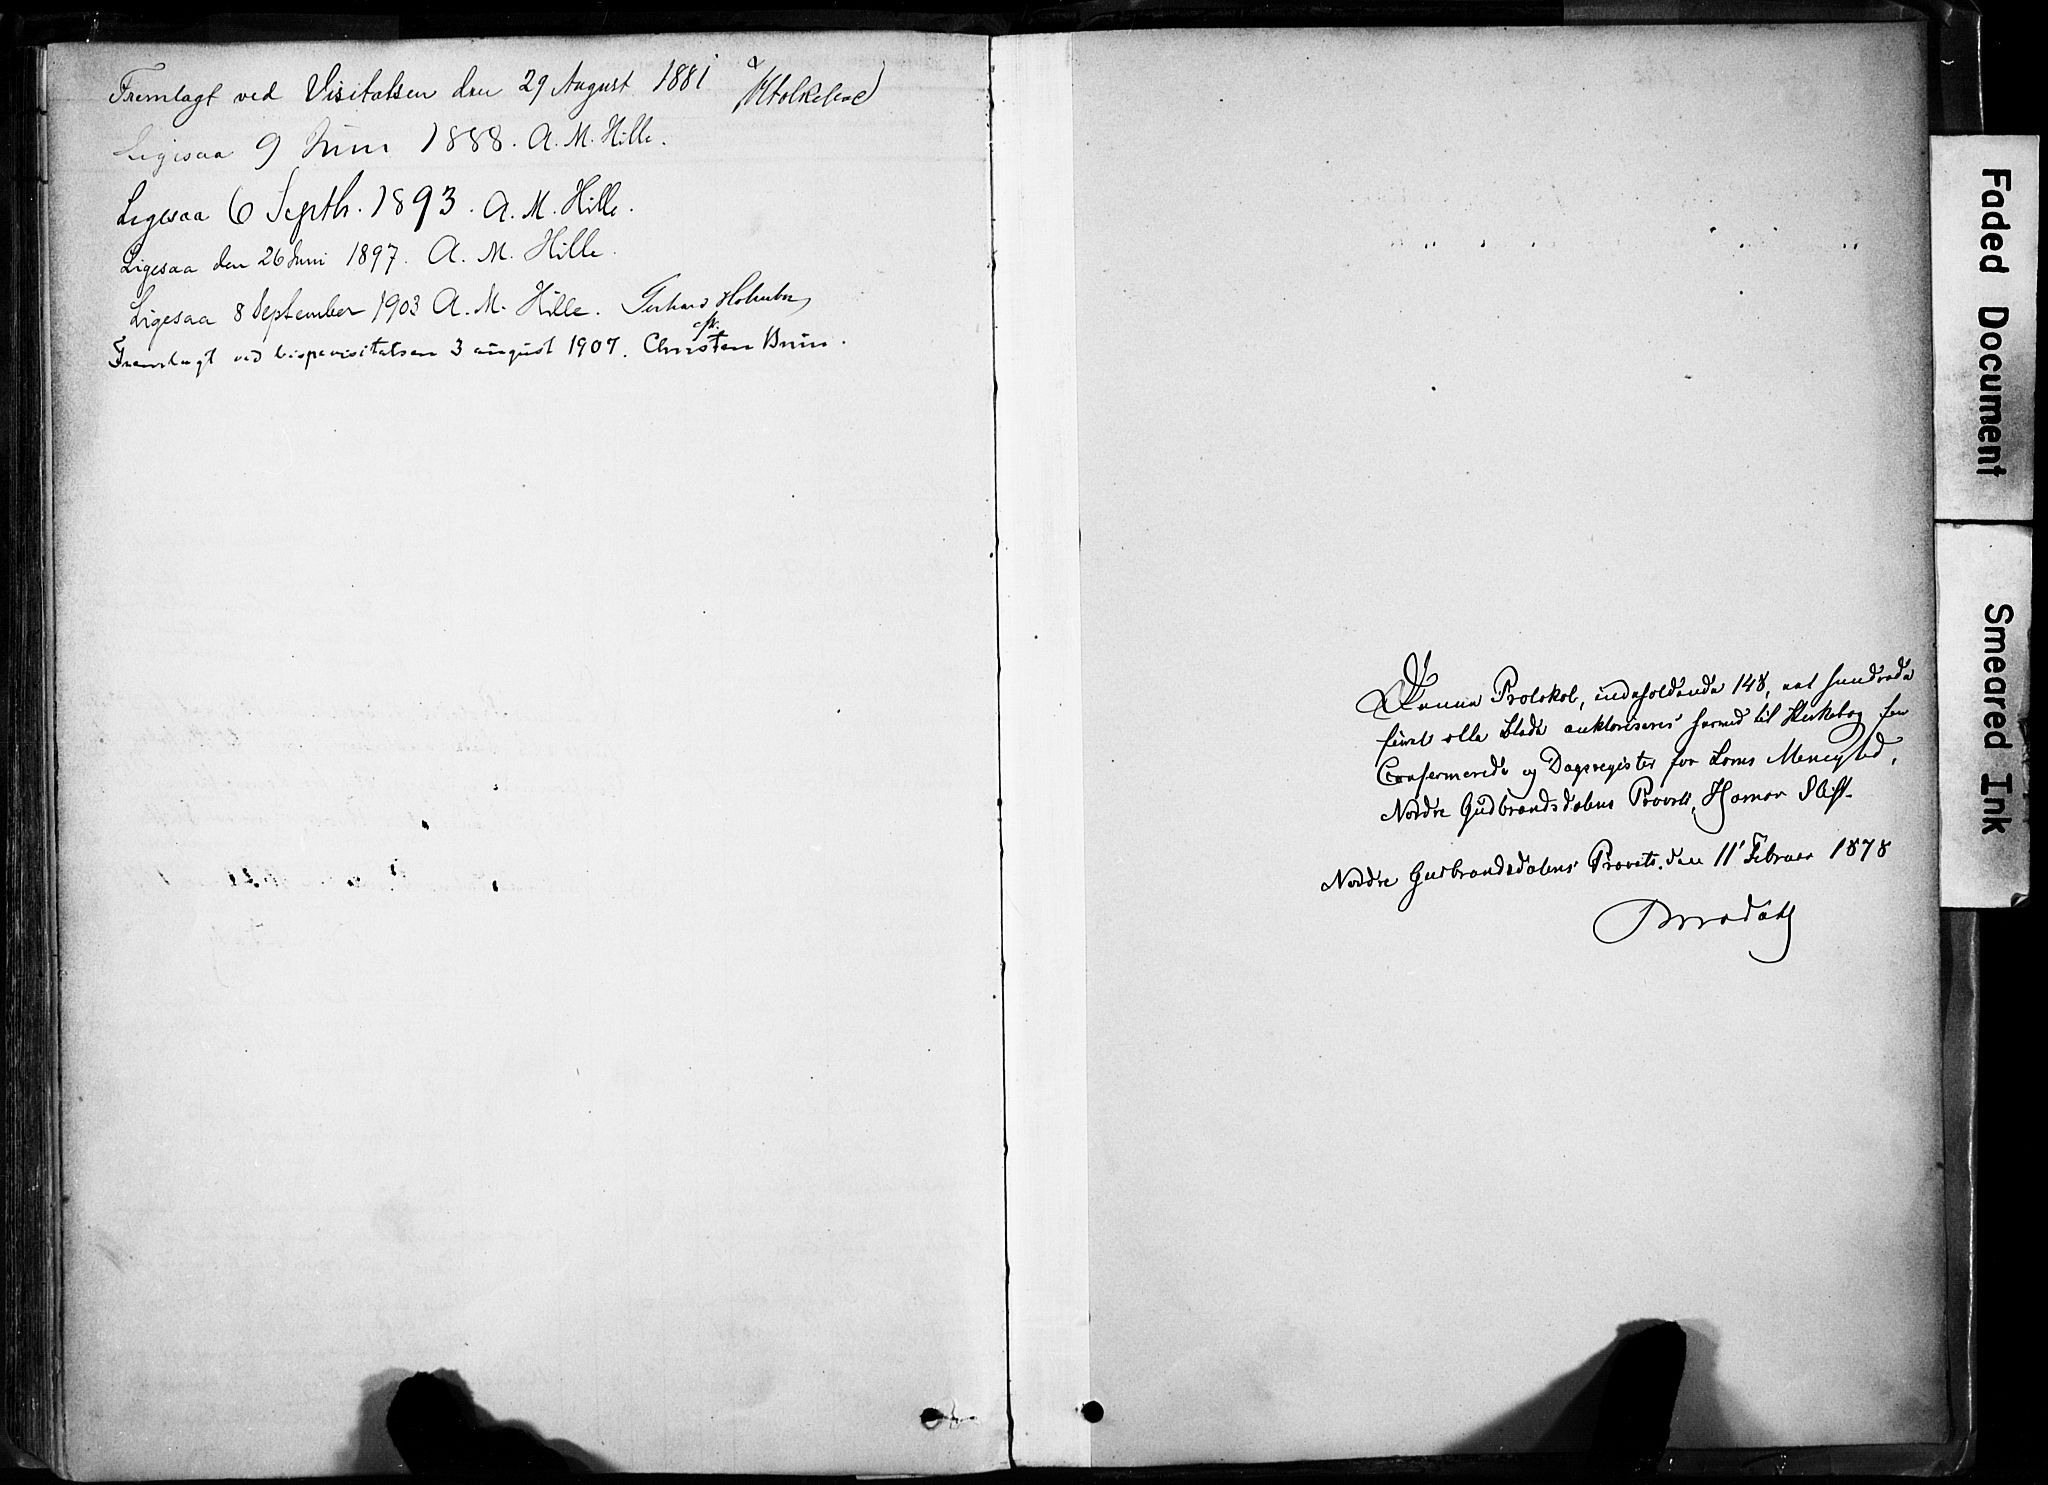 Fremlagt ved Visitatsen den 29 August 1881
Ligesaa 9 Juni 1888. A. M. Hille.
Ligesaa 6 Septbr. 1893. A. M. Hille.
Ligesaa den 26 Juni 1897. A. M. Hille.
Ligesaa 8 September 1903 A. M. Hille.
Fremlagt ved bispevisitatsen 3 august 1907. Christen Brun.
Denne Protokol, indeholdende 148, eet hundrede
førti otte Blade auktoriseres herved til Kirkebog for
Confirmerede og Dagsregister for Loms Menighed,
Nordre Gudbrandsdalens Provsti, Hamar Stift.
Nordre Gudbrandsdalens Provsti den 11 Februar 1878
Faded Document
Smeared Ink